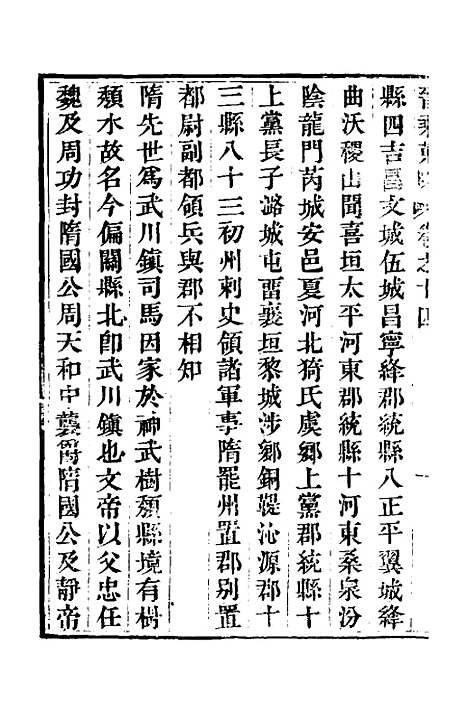 晉乘蒐略 卷之十四
縣四吉昌文城伍城昌寧絳郡統縣八正平翼城絳
曲沃稷山聞喜垣太平河東郡統縣十河東桑泉汾
陰龍門芮城安邑夏河北猗氏虞鄉上黨郡統縣十
上黨長子潞城屯畱襄垣黎城涉鄉銅鞮沁源郡十
三縣八十三初州刺史領諸軍事隋罷州置郡别置
都尉副都領兵與郡不相知
隋先世爲武川鎮司馬因家於神武樹頹縣境有樹
頹水故名今偏關縣北卽武川鎮也文帝以父忠任
魏及周功封隋國公周天和中襲爵隋國公及靜帝